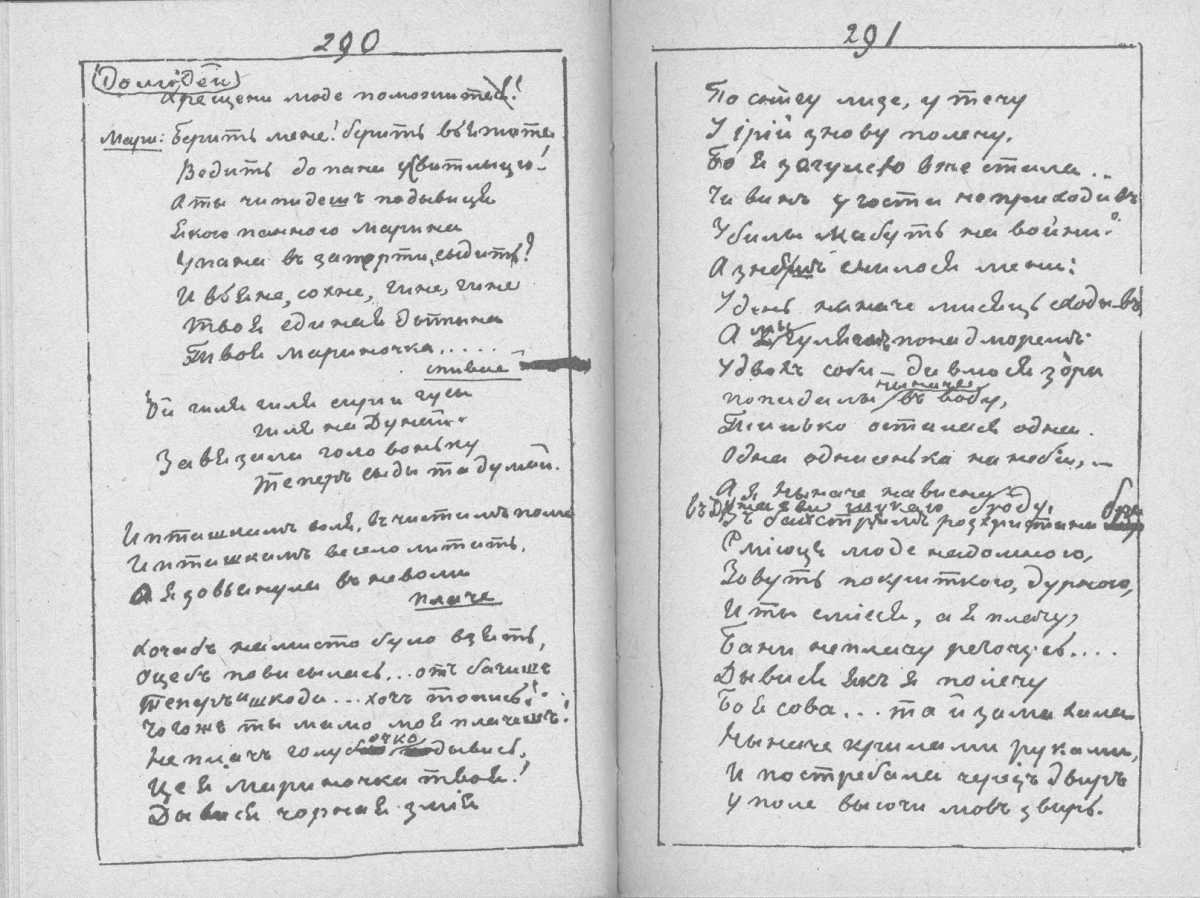 290
Домув, Дей
Хрещени люде поможитеся!
Мари: Берить мене! берить вьяжите
Ведить до пана у свитлыцю!
А ты чи пидешъ подывиця
Якою панною Марина
У пана въ заперти сыдить?
И вьяне, сохне, гине, гине
Твоя единая дытына
Твоя Мариночка.....
спивае
Ой гиля гиля сири гусы
Гиля на Дунай.
Завязали головоньку
Теперь сыды та думай.
И пташкамъ воля, въ чистимъ поли
И пташкамъ весело литать,
А я зовьянула въ неволи
плаче
Хочабъ намисто було взять,
Оцебъ повисылась... отъ бачишъ
Теперъ и шкода... хочъ топись!
Чогожъ ты мамо моя плачешъ?
Не плачъ голубочко дывись,
Це я Мариночка твоя!
Дывися чорная змія
291
По снигу лизе, утечу
У ірій знову полечу.
Бо я зозулею вже стала..
Чи винъ у гости не приходивъ
Убилы мабуть на войни?
А знаешъ снилося мени:
У день ныначе мисяць сходывъ
А мы гуляемъ понадморемъ
У двохъ соби — дывлюся зори
попадалы ныначе въ воду,
Тилько осталася одна.
Одна однисенька на неби, —
А я ныначе нависна
въ Дунаеви шукаю броду,
Зъ байстрямъ розхристана бреду
Сміюця люде надомною,
Зовуть покриткою, дурною,
И ты смієся, а я плачу,
Ба ни не плачу регочусь....
Дывися якъ я полечу
Бо я сова... та й замахала
Ныначе крилами руками,
И пострибала черезъ двиръ
У поле выючи мовъ звирь.